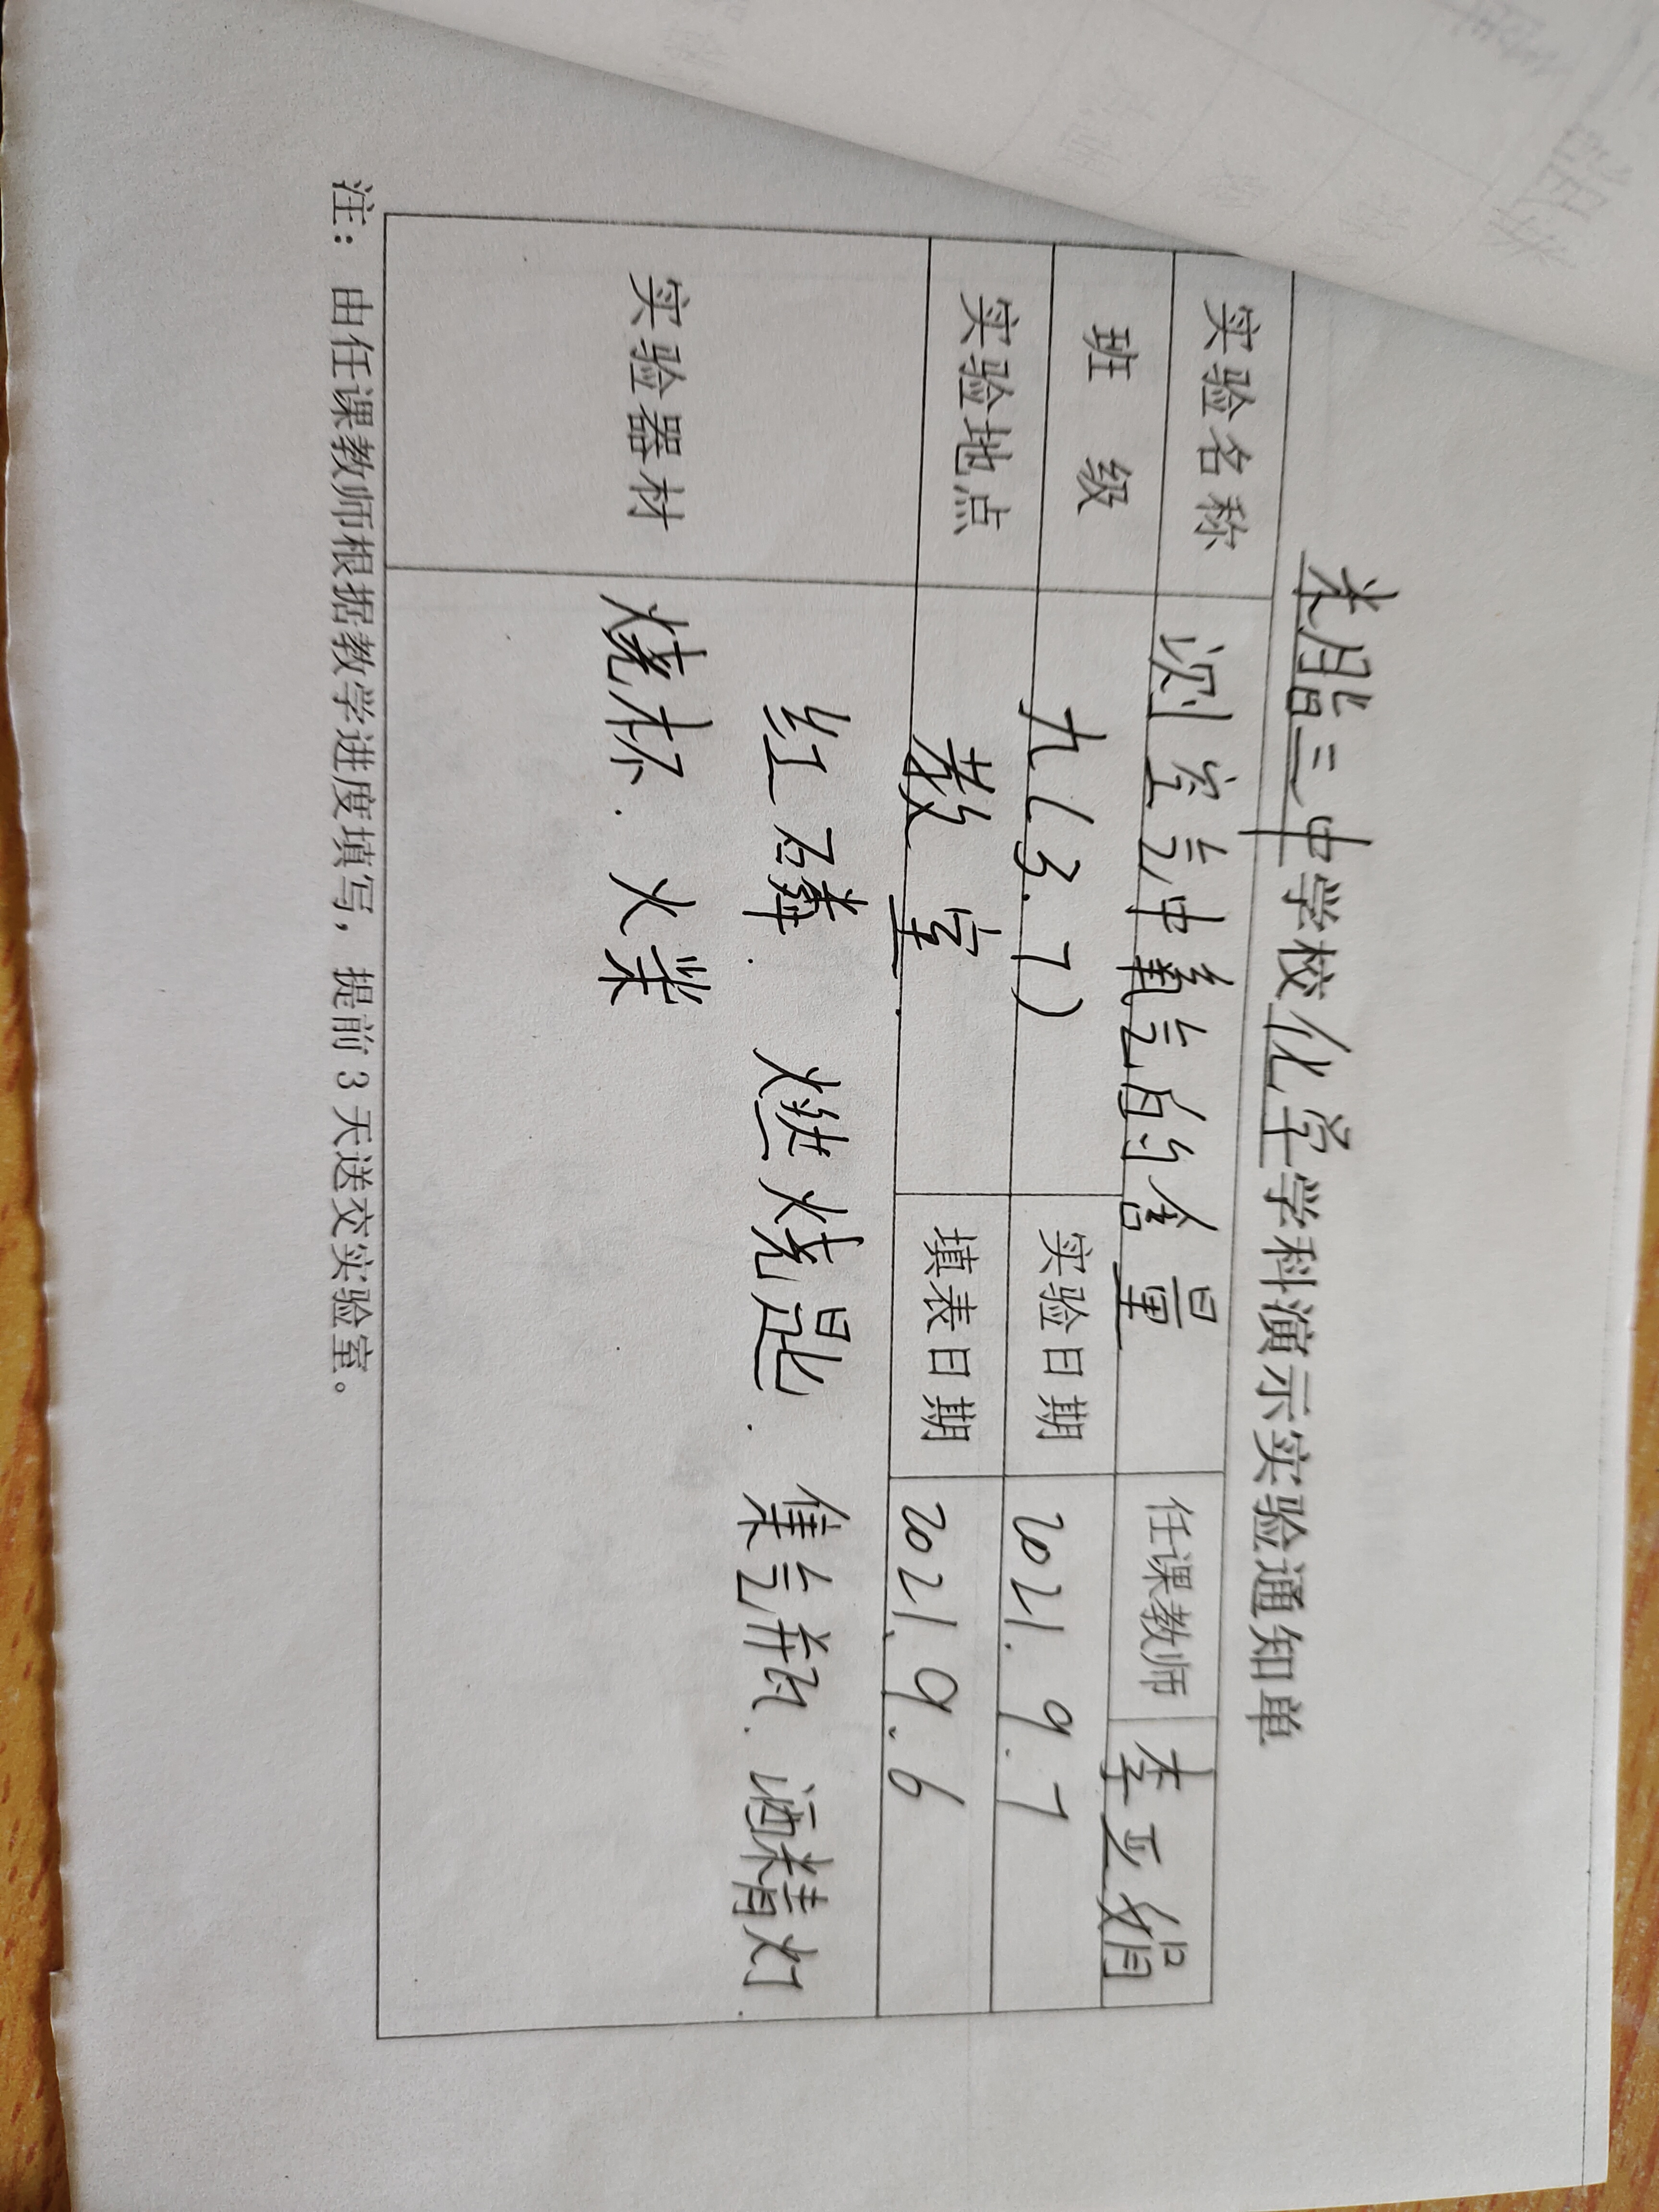 米脂三中学校化学学科演示实验通知单
实验名称 测空气中氧气的含量 任课教师 李亚娟
班级 九(3.7) 实验日期 2021.9.7
实验地点 教室 填表日期 2021.9.6
实验器材 红磷. 燃烧匙. 集气瓶. 酒精灯.
烧杯. 火柴
注：由任课教师根据教学进度填写，提前3天送交实验室。